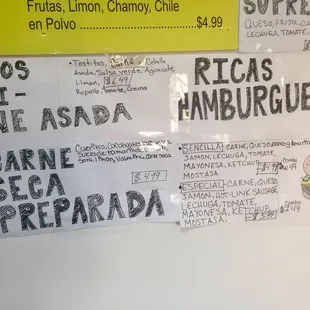 Frutas, Limon, Chamoy, Chile
en Polvo $4.99
SUPRE
QUESO, FRIJOL, C
LECHUGA, TOMATE,
OS
I-
NE ASADA
Tostitos, Cebolla
Asada, Salsa verde, Aguacate
Limon, $6.49
Repollo, Tomate, Crema
CARNE
SECA
PREPARADA
Cueritos, Cacahuates
seca
$4.99
RICAS
HAMBURGUE
SENCILLA: CARNE, QUESO
JAMON, LECHUGA, TOMATE,
MAYONESA, KETCHUP,
MOSTASA
Combo
ESPECIAL: CARNE, QUESO,
JAMON, HOT-LINK SAUSAGE,
LECHUGA, TOMATE,
MAYONESA, KETCHUP,
MOSTASA
Combo